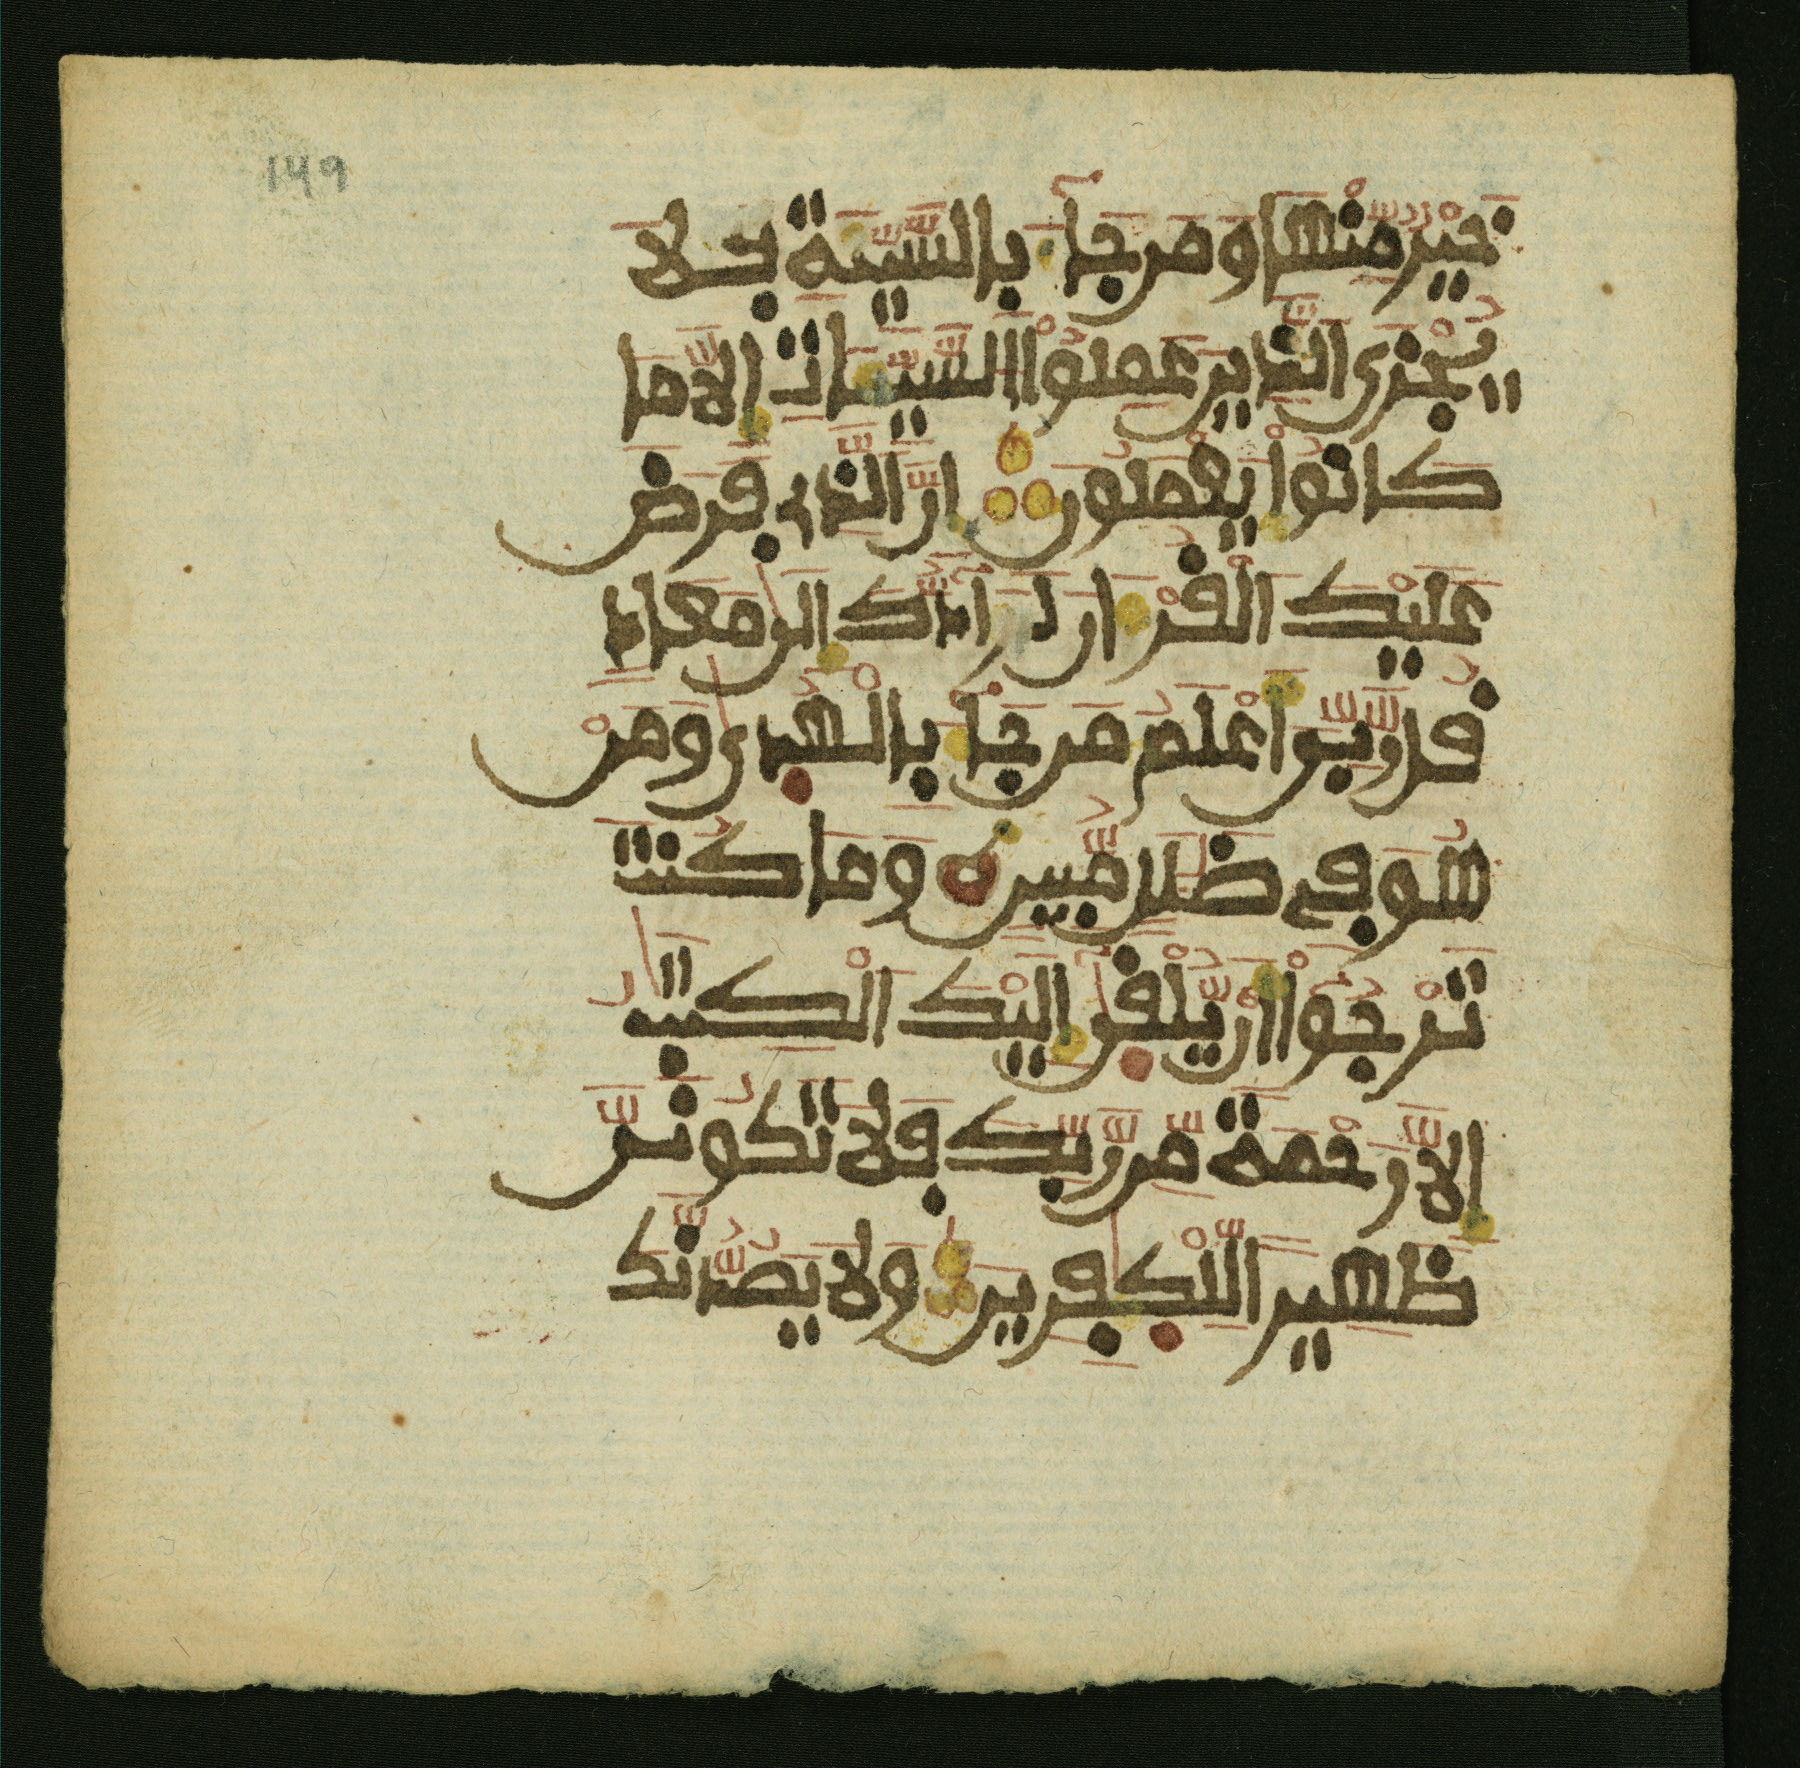 149
خَيْرٌ مِّنْهَا وَمَن جَآءَ بِالسَّيِّئَةِ فَلَا
يُجْزَى الَّذِينَ عَمِلُوا۟ السَّيِّـَٔاتِ إِلَّا مَا
كَانُوا۟ يَعْمَلُونَ إِنَّ الَّذِى فَرَضَ
عَلَيْكَ الْقُرْءَانَ لَرَآدُّكَ إِلَىٰ مَعَادٍ
قُل رَّبِّى أَعْلَمُ مَن جَآءَ بِالْهُدَىٰ وَمَنْ
هُوَ فِى ضَلَٰلٍ مُّبِينٍ وَمَا كُنتَ
تَرْجُوٓا۟ أَن يُلْقَىٰٓ إِلَيْكَ الْكِتَٰبُ
إِلَّا رَحْمَةً مِّن رَّبِّكَ فَلَا تَكُونَنَّ
ظَهِيرًا لِّلْكَٰفِرِينَ وَلَا يَصُدُّنَّكَ